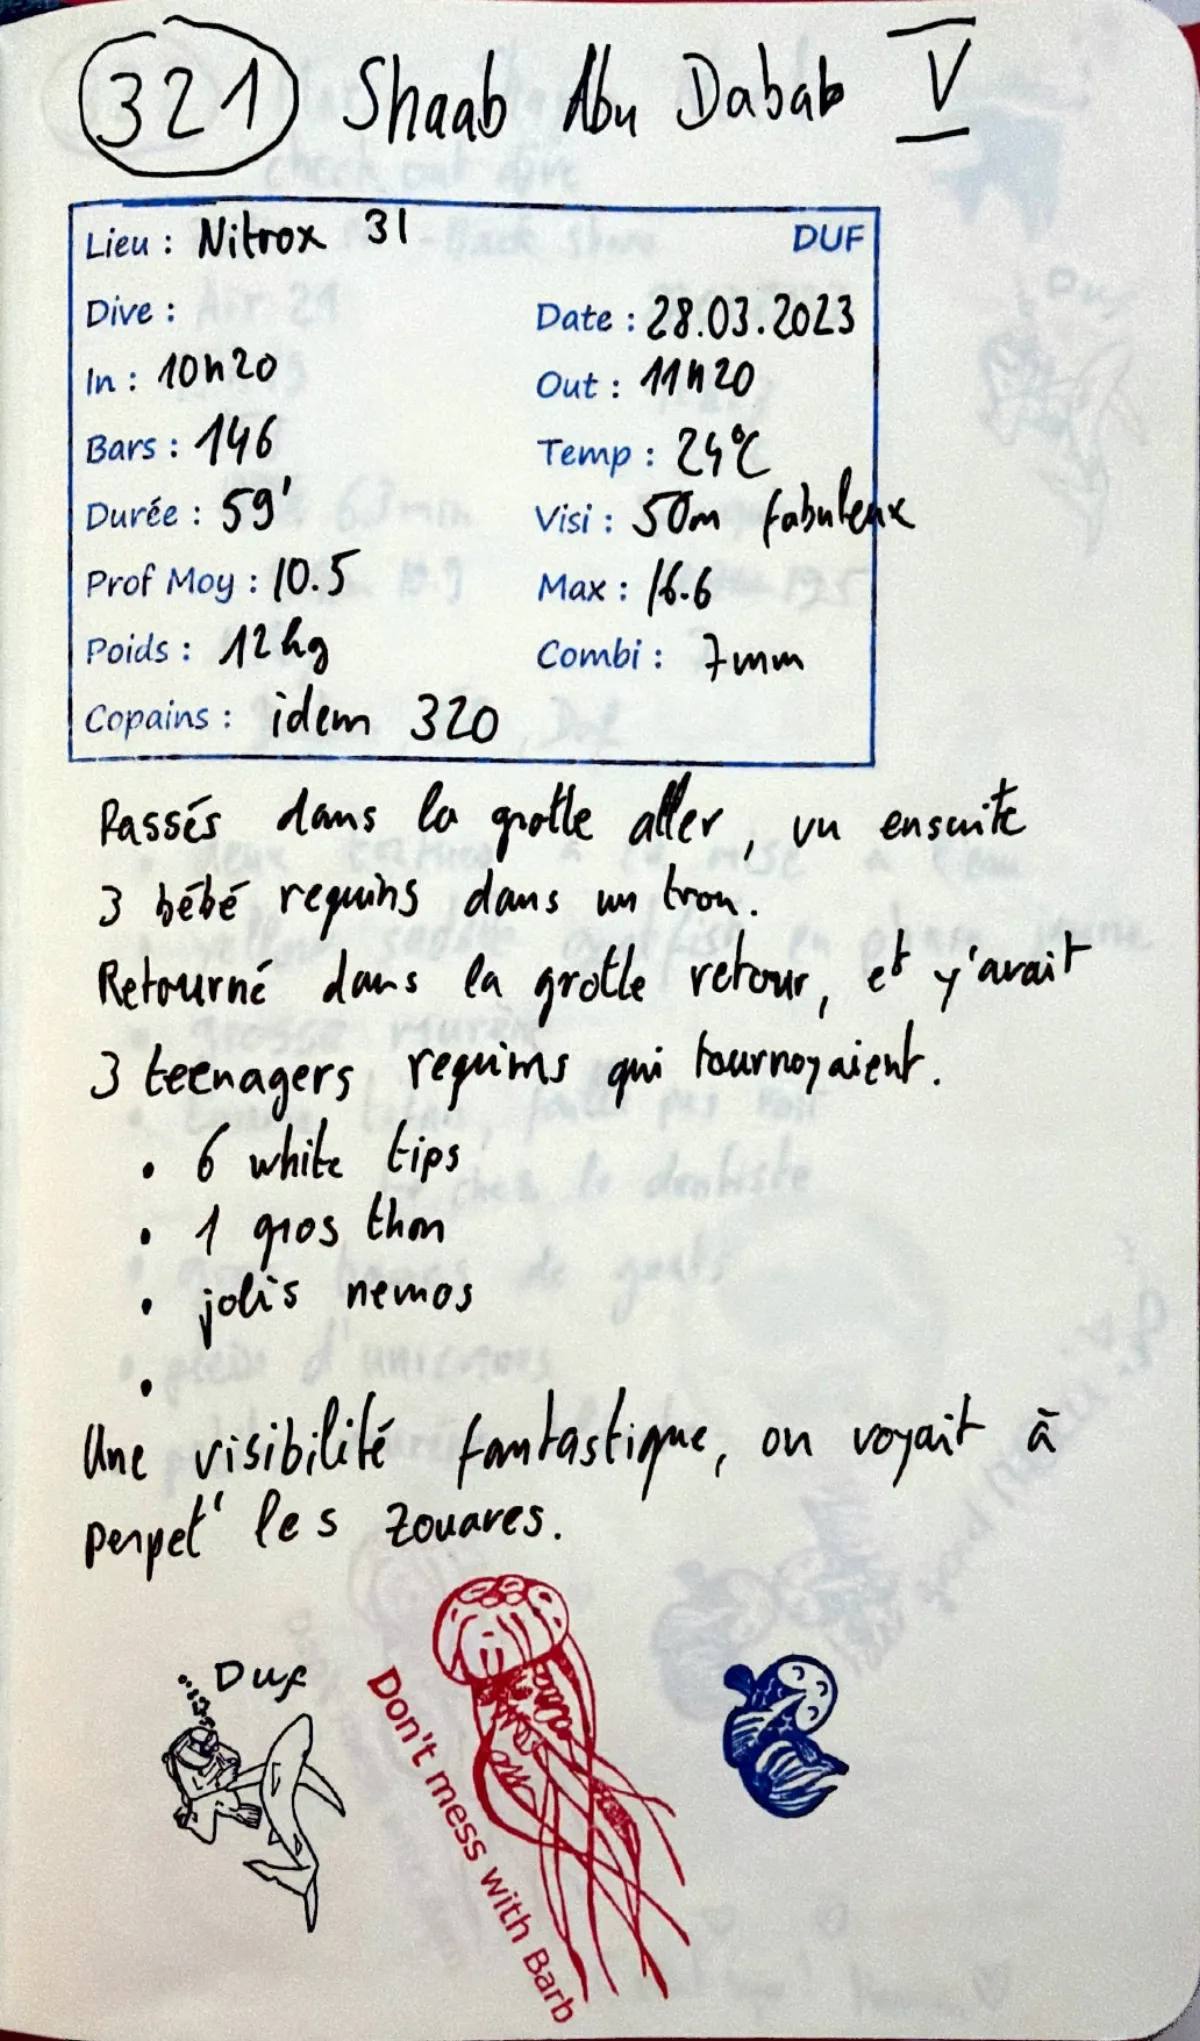 321 Shaab Abu Dabab V
Lieu : Nitrox 31 DUF
Dive :
Date : 28.03.2023
In : 10h20 Out : 11h20
Bars : 146 Temp : 24°C
Durée : 59' Visi : 50m fabuleux
Prof Moy : 10.5 Max : 16.6
Poids : 12kg Combi : 7mm
Copains : idem 320
Passés dans la grotte aller, vu ensuite
3 bébé requins dans un trou.
Retourné dans la grotte retour, et y'avait
3 teenagers requins qui tournoyaient.
• 6 white tips
• 1 gros thon
• jolis nemos
•
Une visibilité fantastique, on voyait à
perpet' les zouares.
Duf
Don't mess with Barb